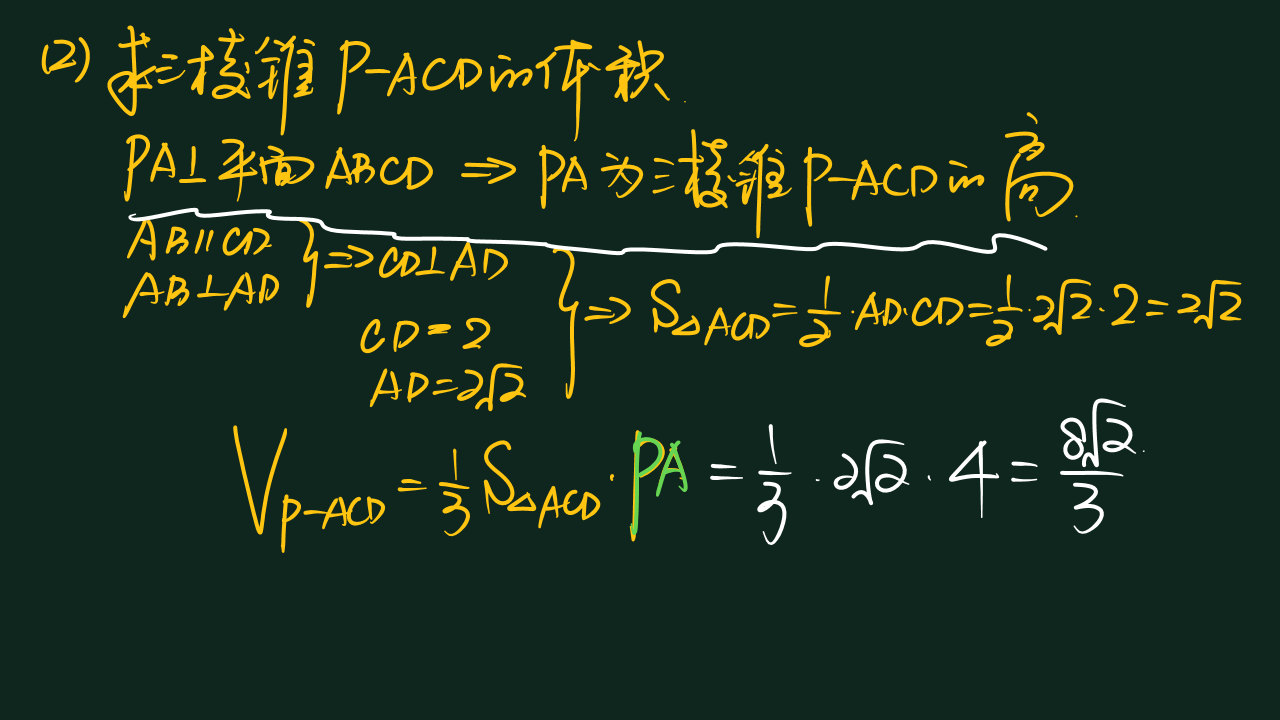 (2) 求三棱锥 P-ACD的体积.
PA⊥平面ABCD ⇒ PA为三棱锥P-ACD的高.
AB∥CD
AB⊥AD } ⇒ CD⊥AD
CD=2
AD=2√2 } ⇒ S△ACD=1/2·AD·CD=1/2·2√2·2=2√2
V P-ACD = 1/3 S△ACD·PA = 1/3·2√2·4 = 8√2/3